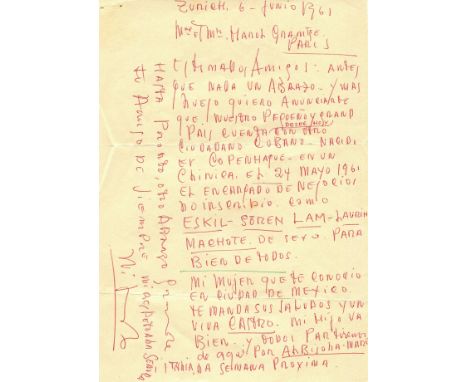 Zurich, 6 - Junio 1961
Mr et Mme
PARIS
Estimados Amigos: Antes
que nada un Abrazo. y mas
luego quiero anunciarte
que nuestro Pequeño y grand
(desde hoy)
País cuenta con otro
ciudadano cubano. Nacido
en Copenhague. en un
Chinica. el 24 mayo 1961
el encargado de negocios
lo inscribio. como
ESKIL-SOREN LAM-LAURIN
MACHOTE. de sexo. PARA
Bien de todos.
Mi mujer que te conocio
en ciudad de Mexico.
te manda sus saludos y un
viva CASTRO. Mi hijo va
Bien. y todos partiremos
de aqui por Albisola-Mare
ITALIA la semana proxima.
Hasta Pronto, otro Abrazo grande
tu Amigo de siempre